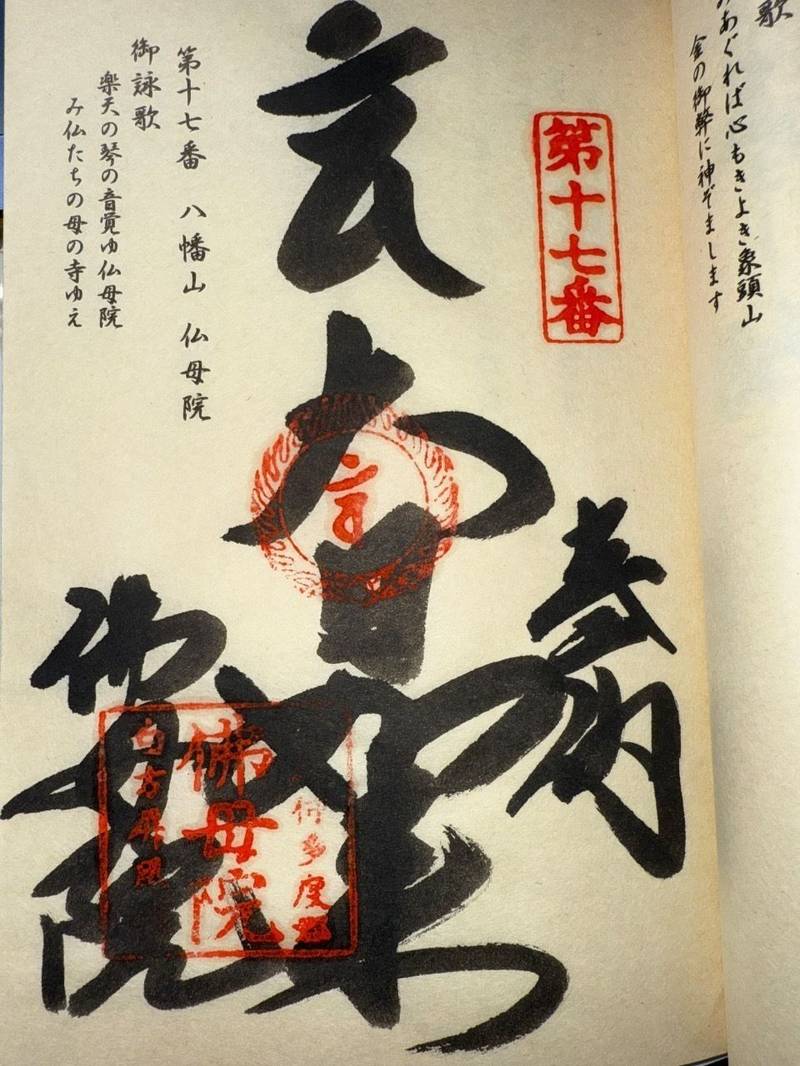 歌
みあぐれば心もきよき象頭山
金の御幣に神ぞまします
第十七番
奉納
大日如来
佛母院
仲多度
佛母院
白方
第十七番 八幡山 仏母院
御詠歌
楽天の琴の音覚ゆ仏母院
み仏たちの母の寺ゆえ